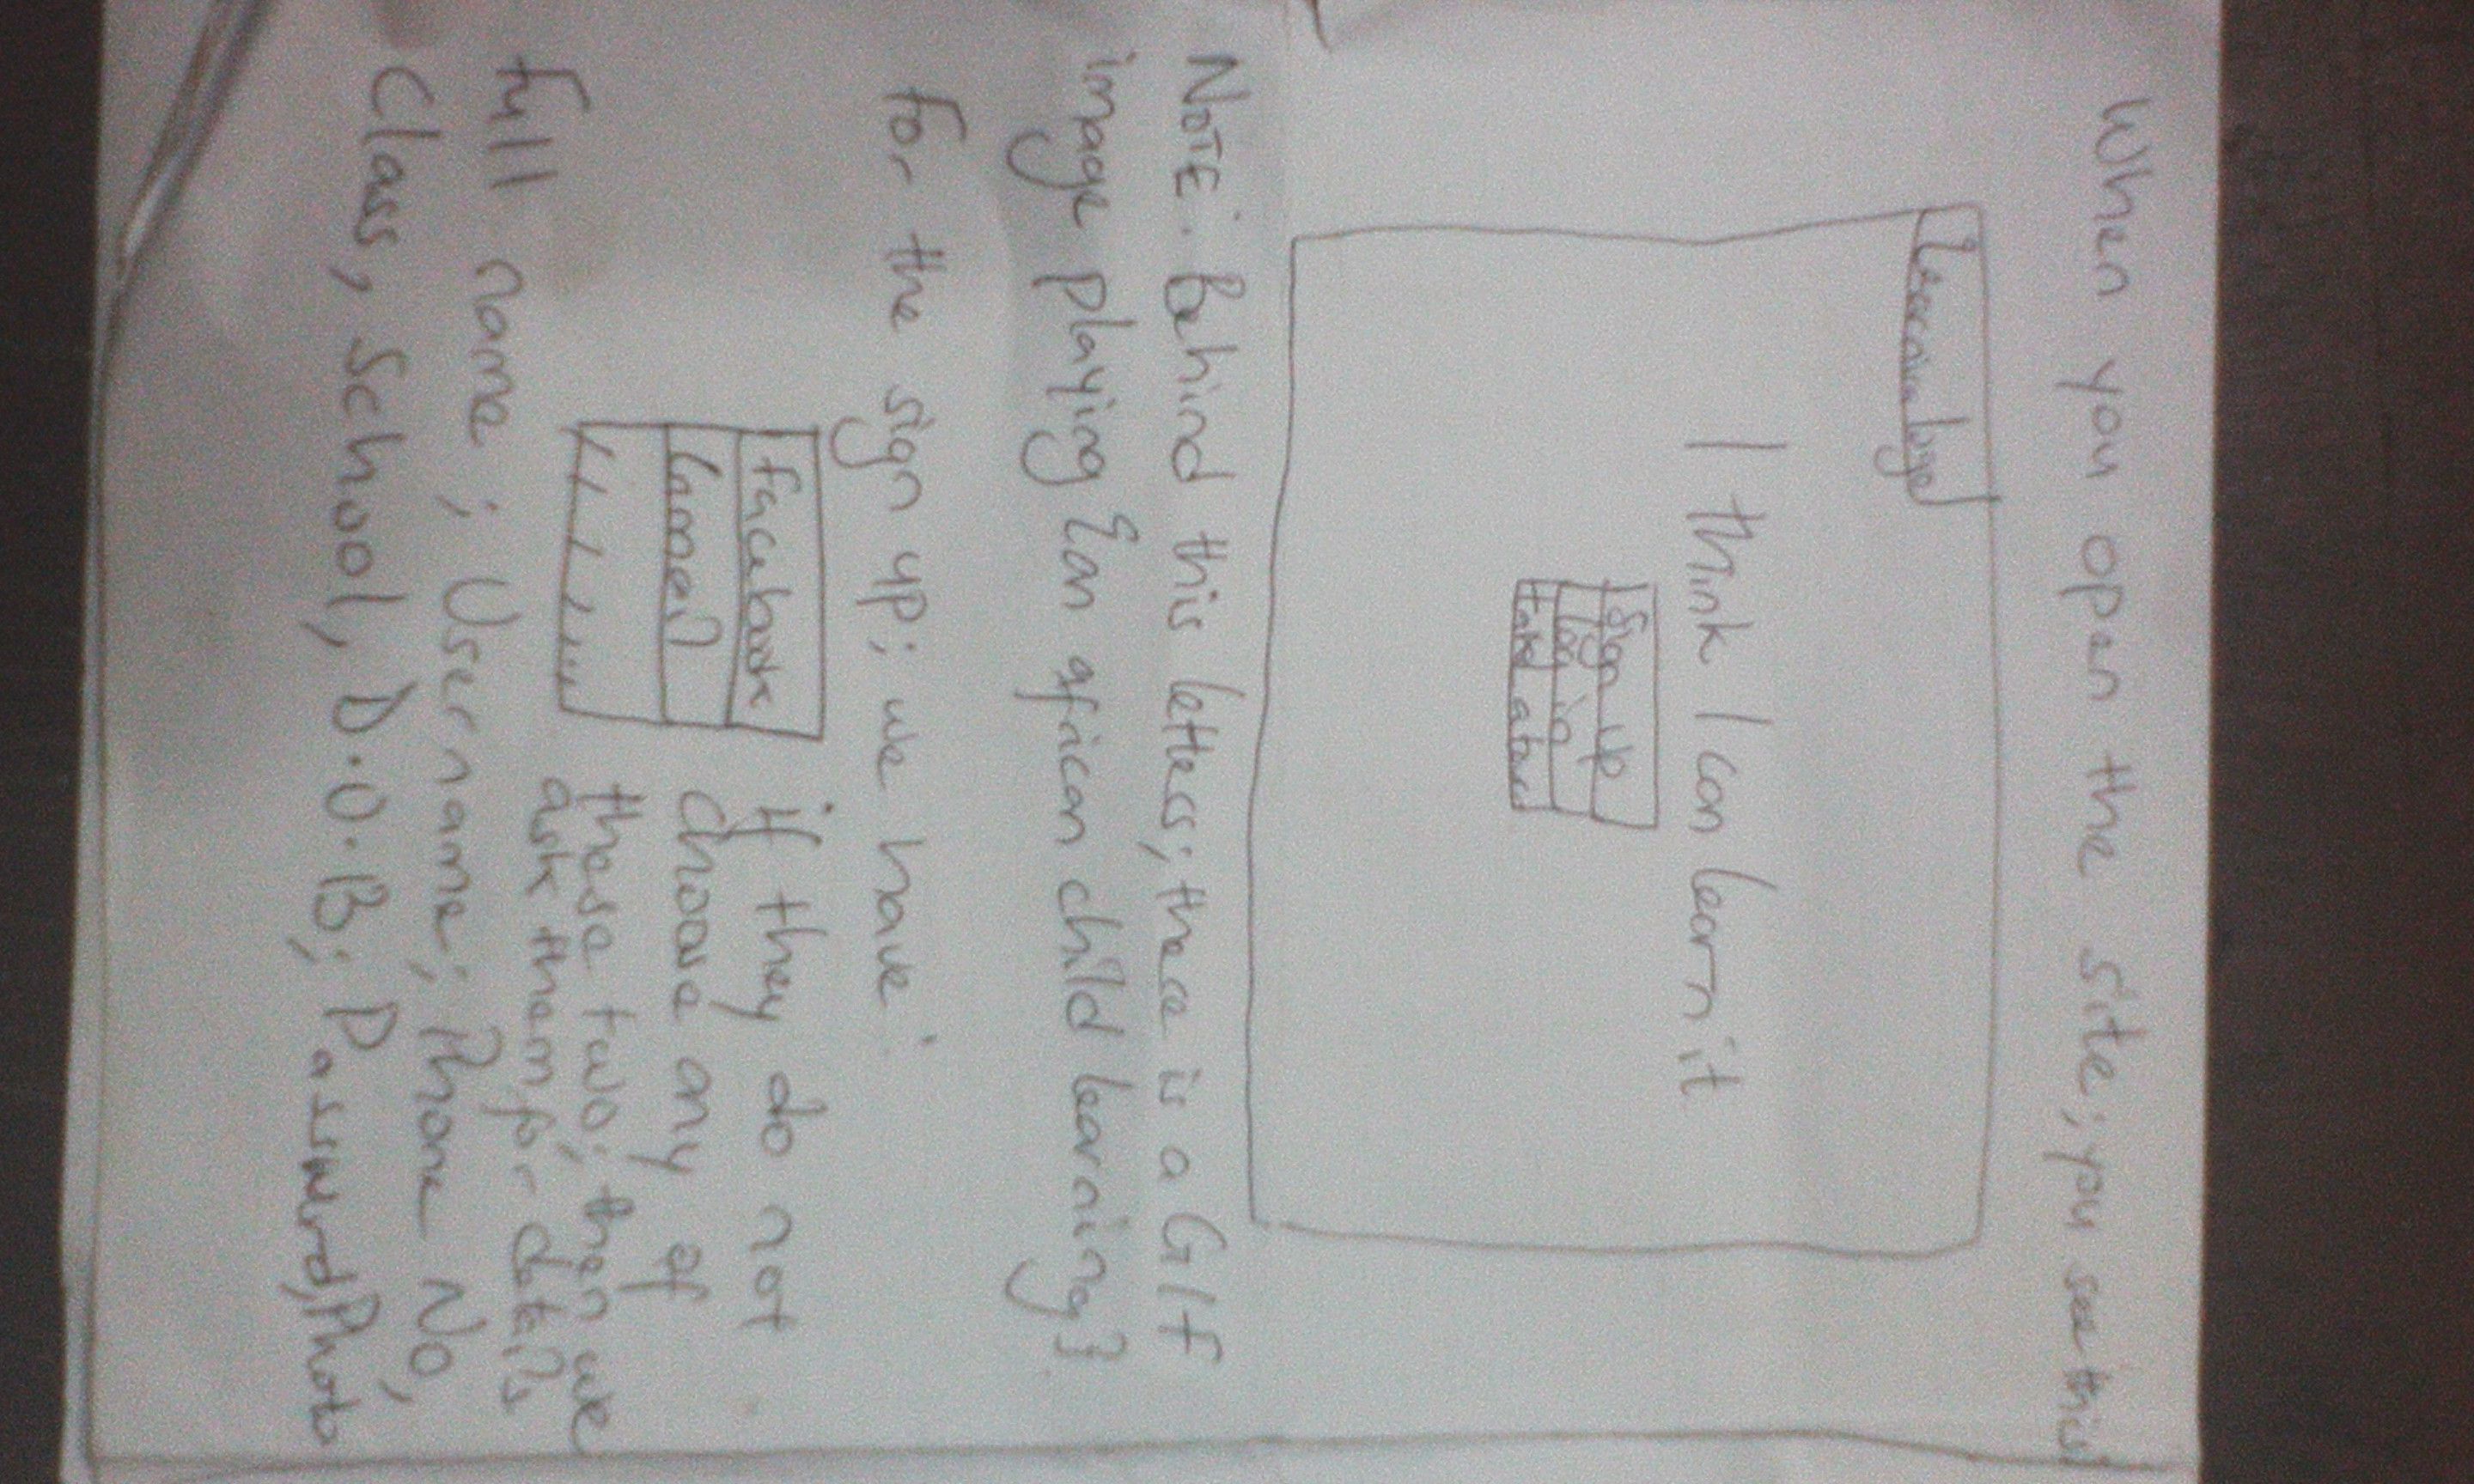 When you open the site; you see this
logo
I think I can learn it
Sign up
log in
NOTE: Behind this letters; there is a GIF
image playing {an african child learning}
For the sign up; we have:
facebook
Gmail
if they do not
choose any of
these two; then we
ask them for details
Full name; Username; Phone No,
Class, School, D.O.B; Password, Photo